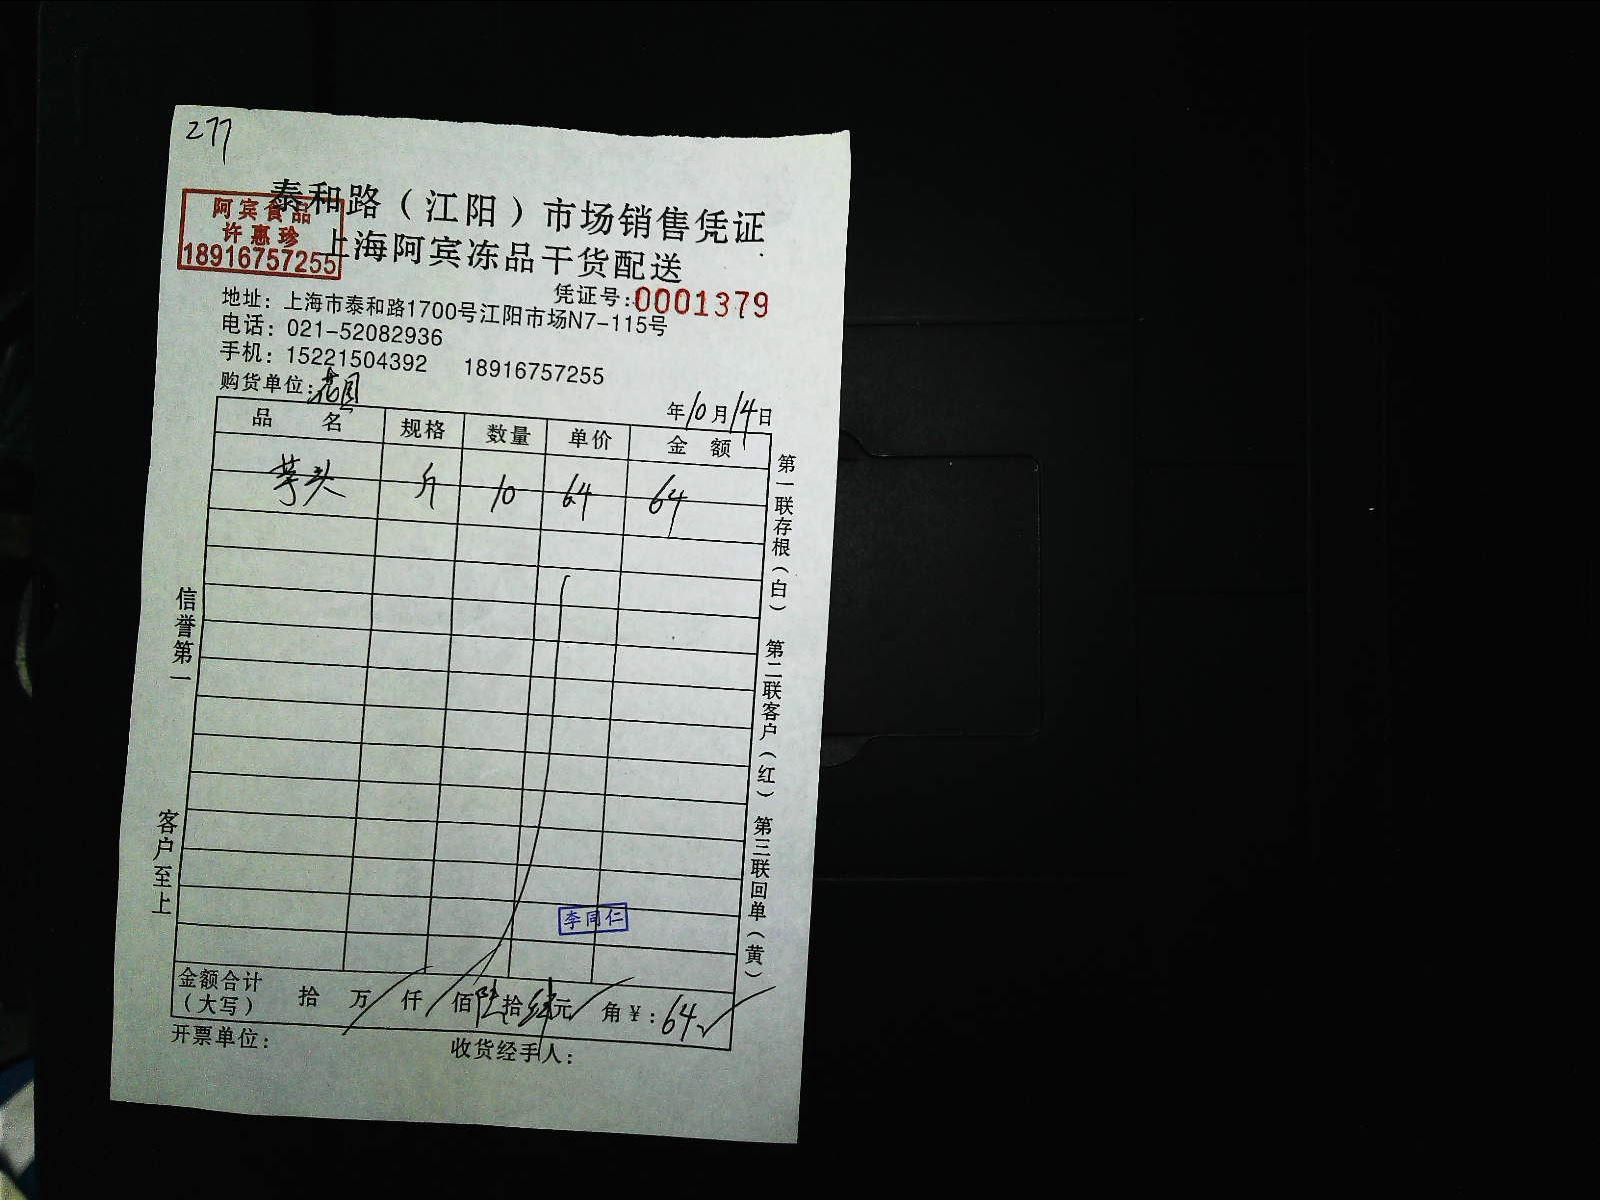 277
泰和路（江阳）市场销售凭证
阿宾食品
许惠珍
18916757255
上海阿宾冻品干货配送
凭证号：0001379
地址：上海市泰和路1700号江阳市场N7-115号
电话：021-52082936
手机：15221504392 18916757255
购货单位： 年10月14日
品 名 规格 数量 单价 金 额
芋头 斤 10 64 64
第一联存根（白） 第二联客户（红） 第三联回单（黄）
信誉第一 客户至上
李同仁
金额合计（大写） 拾 万 仟 佰 陆拾肆元 角 ¥：64
开票单位： 收货经手人：